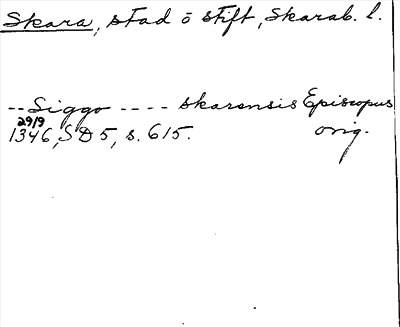 Skara, stad ō stift, Skarab. l.
-- Siggo ---- skarensis Episcopus
29/9
1346, SD5, s. 615. orig.